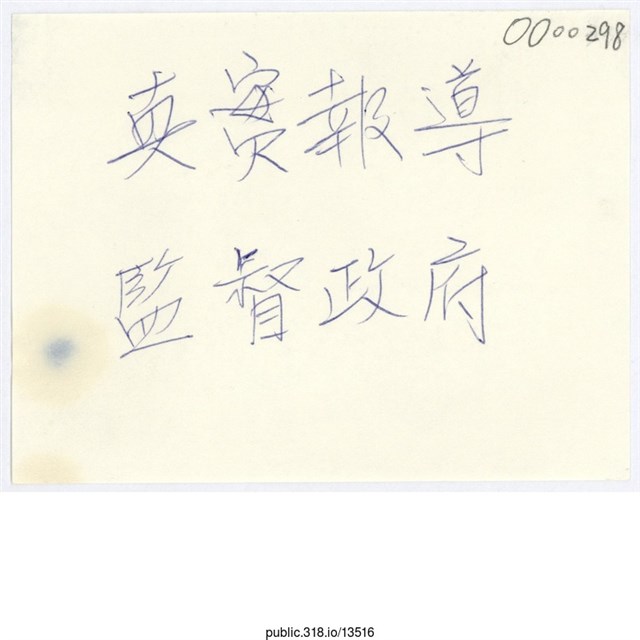 0000298
真實報導
監督政府
public.318.io/13516